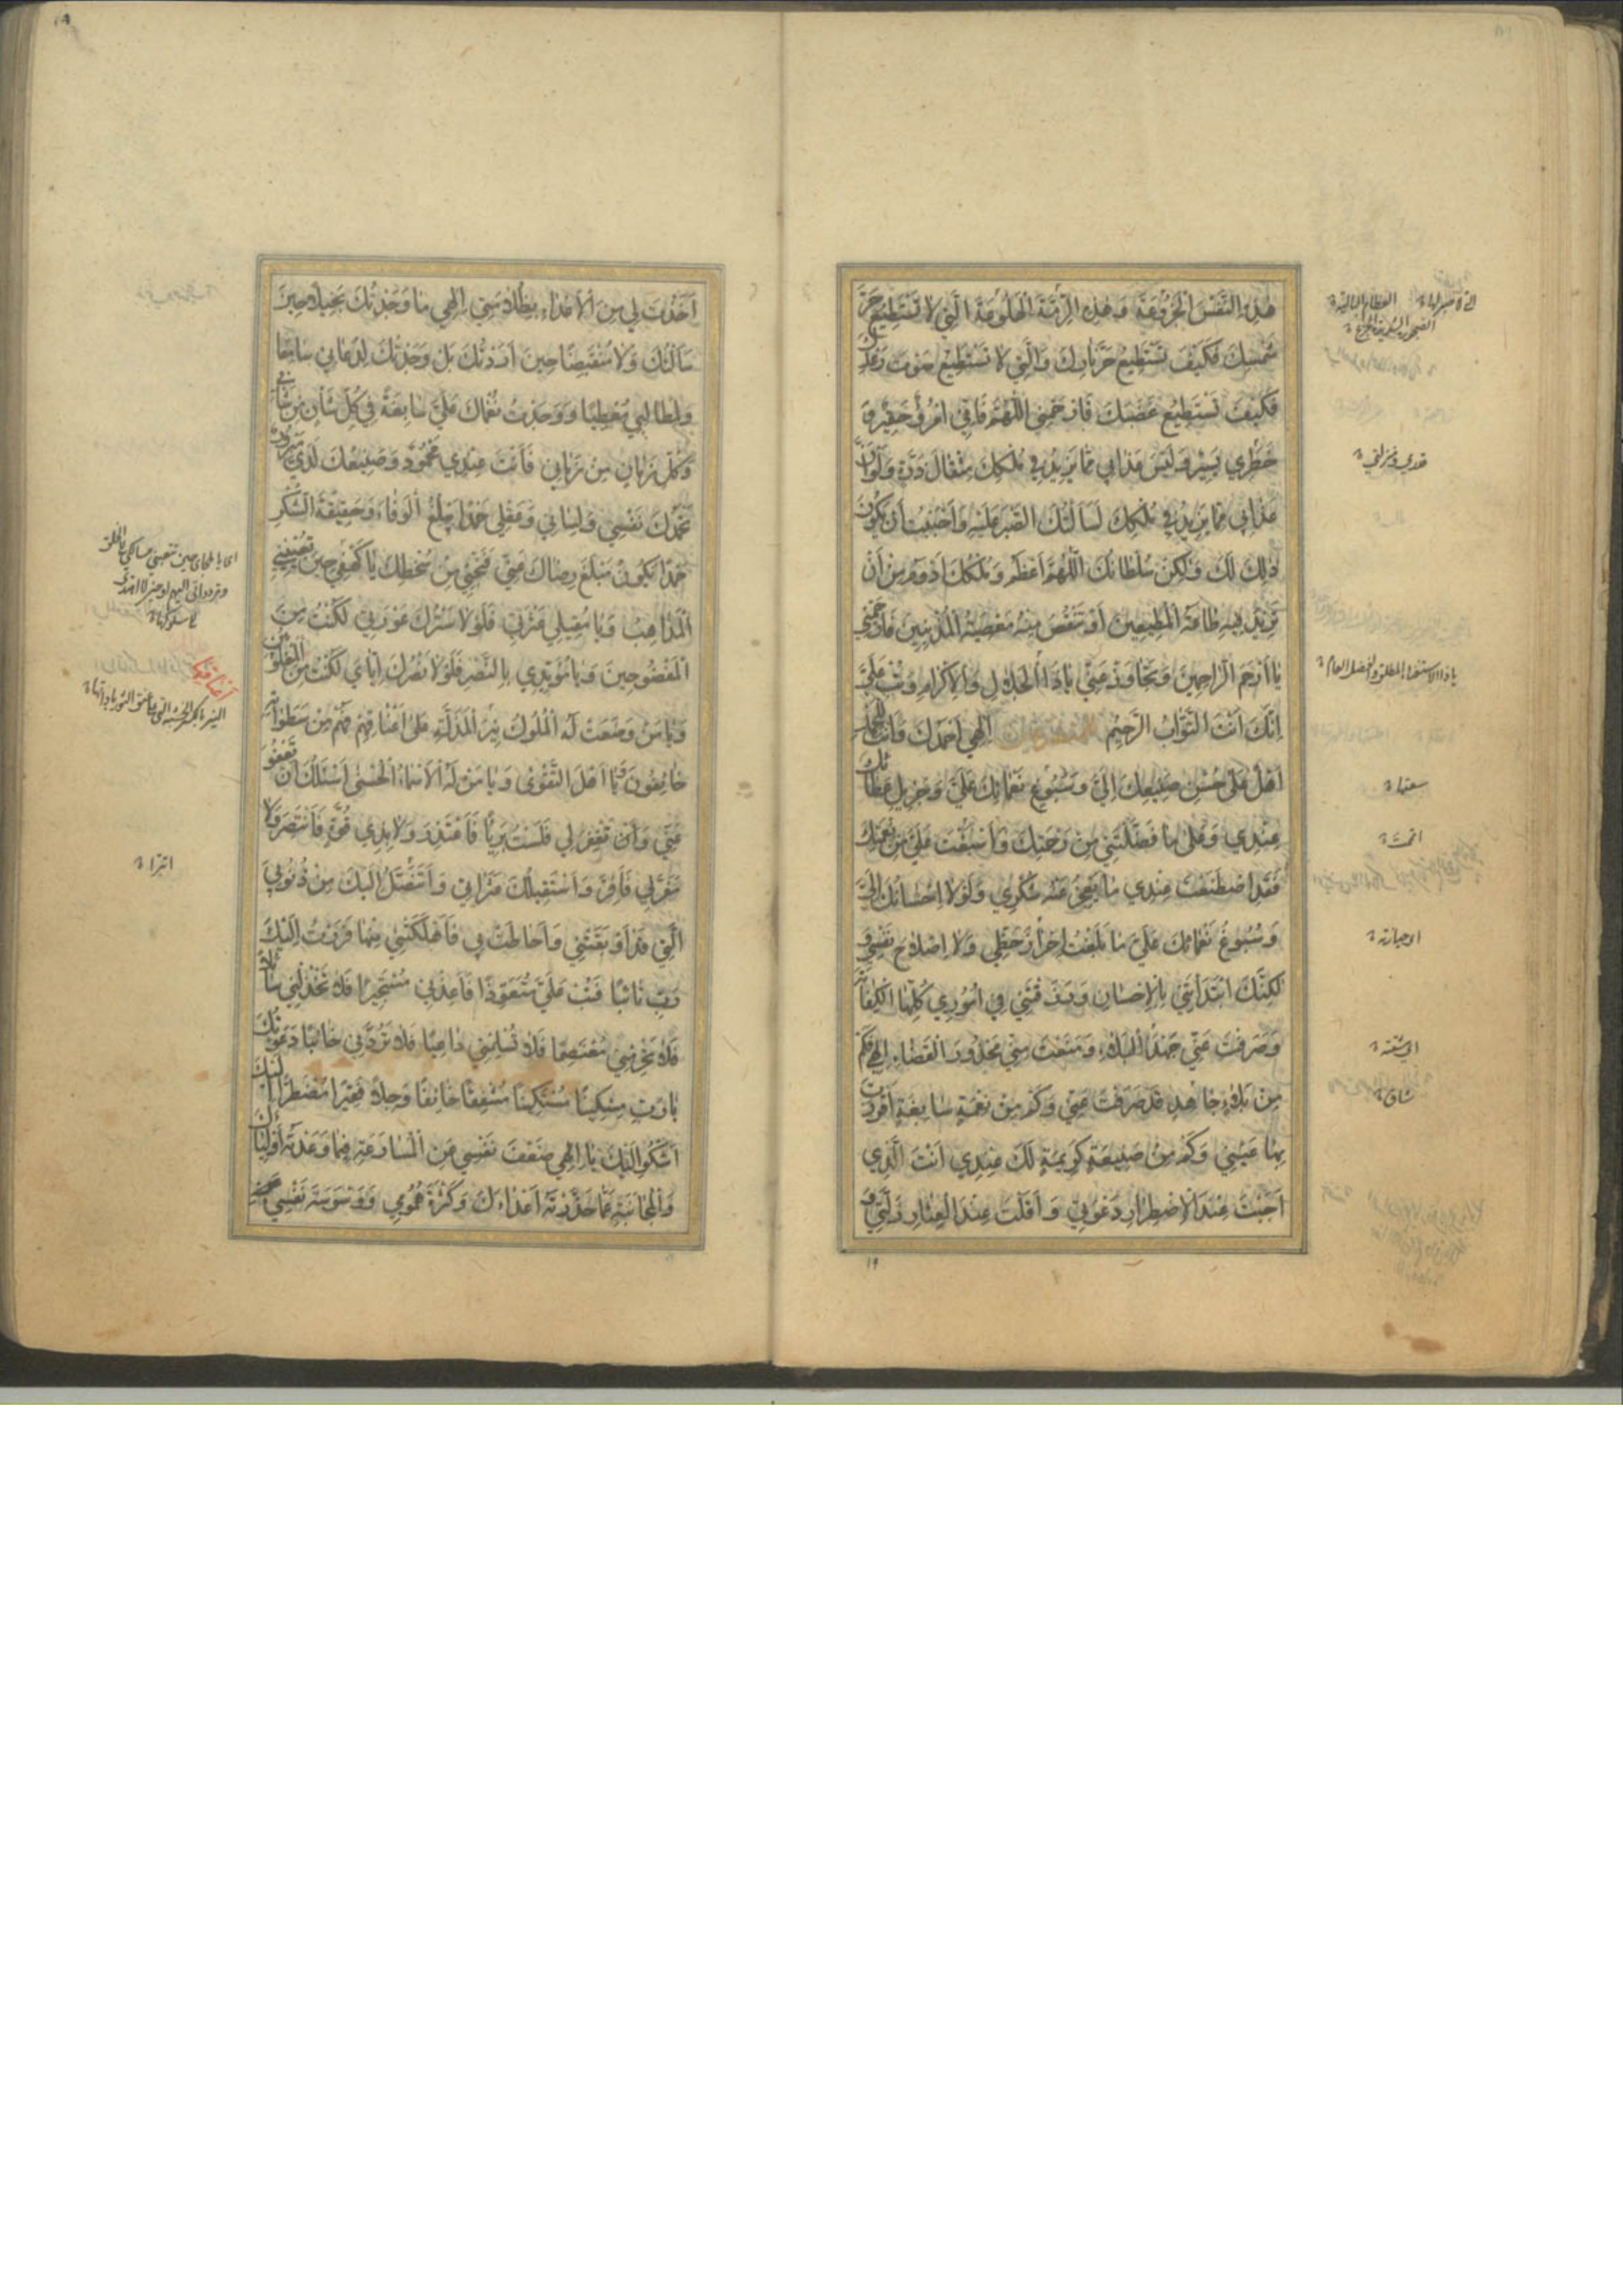 هٰذِهِ النَّفْسَ الْجَزُوعَةَ وَهٰذِهِ الرِّمَّةَ الْهَلُوعَةَ الَّتِي لَا تَسْتَطِيعُ حَرَّ
شَمْسِكَ فَكَيْفَ تَسْتَطِيعُ حَرَّ نَارِكَ وَالَّتِي لَا تَسْتَطِيعُ صَوْتَ رَعْدِكَ
فَكَيْفَ تَسْتَطِيعُ غَضَبَكَ فَارْحَمْنِي اللّٰهُمَّ فَإِنِّي امْرُؤٌ حَقِيرٌ وَ
خَطَرِي يَسِيرٌ وَلَيْسَ عَذَابِي مِمَّا يَزِيدُ فِي مُلْكِكَ مِثْقَالَ ذَرَّةٍ وَلَوْ أَنَّ
عَذَابِي مِمَّا يَزِيدُ فِي مُلْكِكَ لَسَأَلْتُكَ الصَّبْرَ عَلَيْهِ وَأَحْبَبْتُ أَنْ يَكُونَ
ذٰلِكَ لَكَ وَلٰكِنْ سُلْطَانُكَ اللّٰهُمَّ أَعْظَمُ وَمُلْكُكَ أَدْوَمُ مِنْ أَنْ
تَزِيدَ فِيهِ طَاعَةُ الْمُطِيعِينَ أَوْ تَنْقُصَ مِنْهُ مَعْصِيَةُ الْمُذْنِبِينَ فَارْحَمْنِي
يَا أَرْحَمَ الرَّاحِمِينَ وَتَجَاوَزْ عَنِّي يَا ذَا الْجَلَالِ وَالْإِكْرَامِ وَتُبْ عَلَيَّ
إِنَّكَ أَنْتَ التَّوَّابُ الرَّحِيمُ إِلٰهِي أَحْمَدُكَ وَأَنْتَ لِلْحَمْدِ
أَهْلٌ عَلَى حُسْنِ صَنِيعِكَ إِلَيَّ وَسُبُوغِ نَعْمَائِكَ عَلَيَّ وَجَزِيلِ عَطَائِكَ
عِنْدِي وَعَلَى مَا فَضَّلْتَنِي مِنْ رَحْمَتِكَ وَأَسْبَغْتَ عَلَيَّ مِنْ نِعْمَتِكَ
فَقَدِ اصْطَنَعْتَ عِنْدِي مَا يَعْجِزُ عَنْهُ شُكْرِي وَلَوْلَا إِحْسَانُكَ إِلَيَّ
وَسُبُوغُ نَعْمَائِكَ عَلَيَّ مَا بَلَغْتُ إِحْرَازَ حَظِّي وَلَا إِصْلَاحَ نَفْسِي وَ
لٰكِنَّكَ ابْتَدَأْتَنِي بِالْإِحْسَانِ وَرَزَقْتَنِي فِي أُمُورِي كُلِّهَا الْكِفَايَةَ
وَصَرَفْتَ عَنِّي جَهْدَ الْبَلَاءِ وَمَنَعْتَ مِنِّي مَحْذُورَ الْقَضَاءِ إِلٰهِي فَكَمْ
مِنْ بَلَاءٍ جَاهِدٍ قَدْ صَرَفْتَ عَنِّي وَكَمْ مِنْ نِعْمَةٍ سَابِغَةٍ أَقْرَرْتَ
بِهَا عَيْنِي وَكَمْ مِنْ صَنِيعَةٍ كَرِيمَةٍ لَكَ عِنْدِي أَنْتَ الَّذِي
أَجَبْتَ عِنْدَ الْاِضْطِرَارِ دَعْوَتِي وَأَقَلْتَ عِنْدَ الْعِثَارِ زَلَّتِي وَ
العظام البالية
قدري ومنزلتي
سعتها
اتممت
اي حيازة
اي مشقته
شاق
أَخَذْتَ لِي مِنَ الْأَعْدَاءِ بِظُلَامَتِي إِلٰهِي مَا وَجَدْتُكَ بَخِيلًا حِينَ
سَأَلْتُكَ وَلَا مُنْقَبِضًا حِينَ أَرَدْتُكَ بَلْ وَجَدْتُكَ لِدُعَائِي سَامِعًا
وَلِمَطَالِبِي مُعْطِيًا وَوَجَدْتُ نُعْمَاكَ عَلَيَّ سَابِغَةً فِي كُلِّ شَأْنٍ مِنْ شَأْنِي
وَكُلِّ زَمَانٍ مِنْ زَمَانِي فَأَنْتَ عِنْدِي مَحْمُودٌ وَصَنِيعُكَ لَدَيَّ مَبْرُورٌ
تَحْمَدُكَ نَفْسِي وَلِسَانِي وَعَقْلِي حَمْدًا يَبْلُغُ الْوَفَاءَ وَحَقِيقَةَ الشُّكْرِ
حَمْدًا يَكُونُ مَبْلَغَ رِضَاكَ عَنِّي فَنَجِّنِي مِنْ سُخْطِكَ يَا كَهْفِي حِينَ تُعْيِينِي
الْمَذَاهِبُ وَيَا مُقِيلِي عَثْرَتِي فَلَوْلَا سَتْرُكَ عَوْرَتِي لَكُنْتُ مِنَ
الْمَفْضُوحِينَ وَيَا مُؤَيِّدِي بِالنَّصْرِ فَلَوْلَا نَصْرُكَ إِيَّايَ لَكُنْتُ مِنَ الْمَغْلُوبِينَ
وَيَا مَنْ وَضَعَتْ لَهُ الْمُلُوكُ نِيرَ الْمَذَلَّةِ عَلَى أَعْنَاقِهِمْ فَهُمْ مِنْ سَطَوَاتِهِ
خَائِفُونَ وَيَا أَهْلَ التَّقْوَى وَيَا مَنْ لَهُ الْأَسْمَاءُ الْحُسْنَى أَسْئَلُكَ أَنْ تَعْفُوَ
عَنِّي وَأَنْ تَغْفِرَ لِي فَلَسْتُ بَرِيئًا فَأَعْتَذِرَ وَلَا بِذِي قُوَّةٍ فَأَنْتَصِرَ وَلَا
مَفَرَّ لِي فَأَفِرَّ وَأَسْتَقِيلُكَ عَثَرَاتِي وَأَتَنَصَّلُ إِلَيْكَ مِنْ ذُنُوبِيَ
الَّتِي قَدْ أَوْبَقَتْنِي وَأَحَاطَتْ بِي فَأَهْلَكَتْنِي مِنْهَا فَرَرْتُ إِلَيْكَ
رَبِّ تَائِبًا فَتُبْ عَلَيَّ مُتَعَوِّذًا فَأَعِذْنِي مُسْتَجِيرًا فَلَا تَخْذُلْنِي سَائِلًا
فَلَا تَحْرِمْنِي مُعْتَصِمًا فَلَا تُسْلِمْنِي دَاعِيًا فَلَا تَرُدَّنِي خَائِبًا دَعَوْتُكَ
يَا رَبِّ مِسْكِينًا مُسْتَكِينًا مُشْفِقًا خَائِفًا وَجِلًا فَقِيرًا مُضْطَرًّا إِلَيْكَ
أَشْكُو إِلَيْكَ يَا إِلٰهِي ضَعْفَ نَفْسِي عَنِ الْمُسَارَعَةِ فِيمَا وَعَدْتَهُ أَوْلِيَاءَكَ
وَالْمُجَانَبَةِ عَمَّا حَذَّرْتَهُ أَعْدَاءَكَ وَكَثْرَةَ هُمُومِي وَوَسْوَسَةَ نَفْسِي